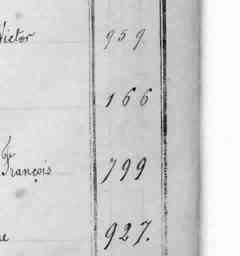 Victor 959.
166
François 799
927.